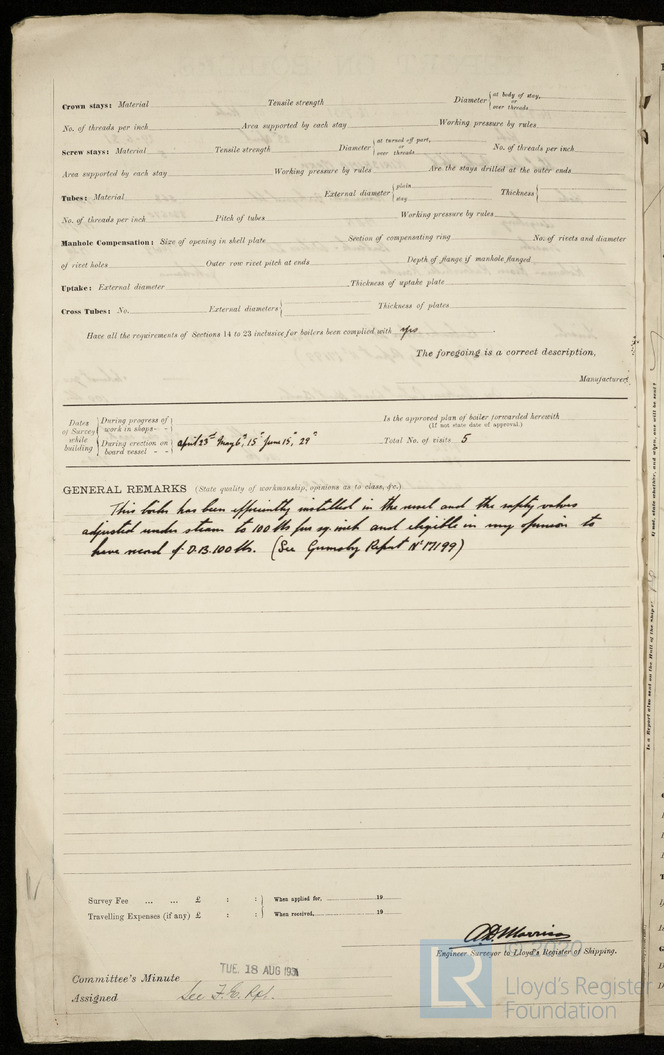 Crown stays: Material Tensile strength Diameter { at body of stay, or over threads
No. of threads per inch Area supported by each stay Working pressure by rules
Screw stays: Material Tensile strength Diameter { at turned off part, or over threads No. of threads per inch
Area supported by each stay Working pressure by rules Are the stays drilled at the outer ends
Tubes: Material External diameter { plain stay Thickness {
No. of threads per inch Pitch of tubes Working pressure by rules
Manhole Compensation: Size of opening in shell plate Section of compensating ring No. of rivets and diameter
of rivet holes Outer row rivet pitch at ends Depth of flange if manhole flanged
Uptake: External diameter Thickness of uptake plate
Cross Tubes: No. External diameters { Thickness of plates
Have all the requirements of Sections 14 to 23 inclusive for boilers been complied with yes
The foregoing is a correct description,
Manufacturer.
Dates of Survey while building { During progress of work in shops - - } Is the approved plan of boiler forwarded herewith
(If not state date of approval.)
{ During erection on board vessel - - } April 23rd May 6th, 15th June 15th, 29th Total No. of visits 5
GENERAL REMARKS (State quality of workmanship, opinions as to class, &c.)
This boiler has been efficiently installed in the vessel and the safety valves
adjusted under steam to 100 lbs per sq. inch and eligible in my opinion to
have record of D.B. 100 lbs. (See Grimsby Report No 17199)
Survey Fee ... ... £ : : } When applied for, 19
Travelling Expenses (if any) £ : : } When received, 19
Engineer Surveyor to Lloyd's Register of Shipping.
© 2020
Lloyd's Register
Foundation
LR
Committee's Minute TUE. 18 AUG 1931
Assigned See F.E. Rpt.